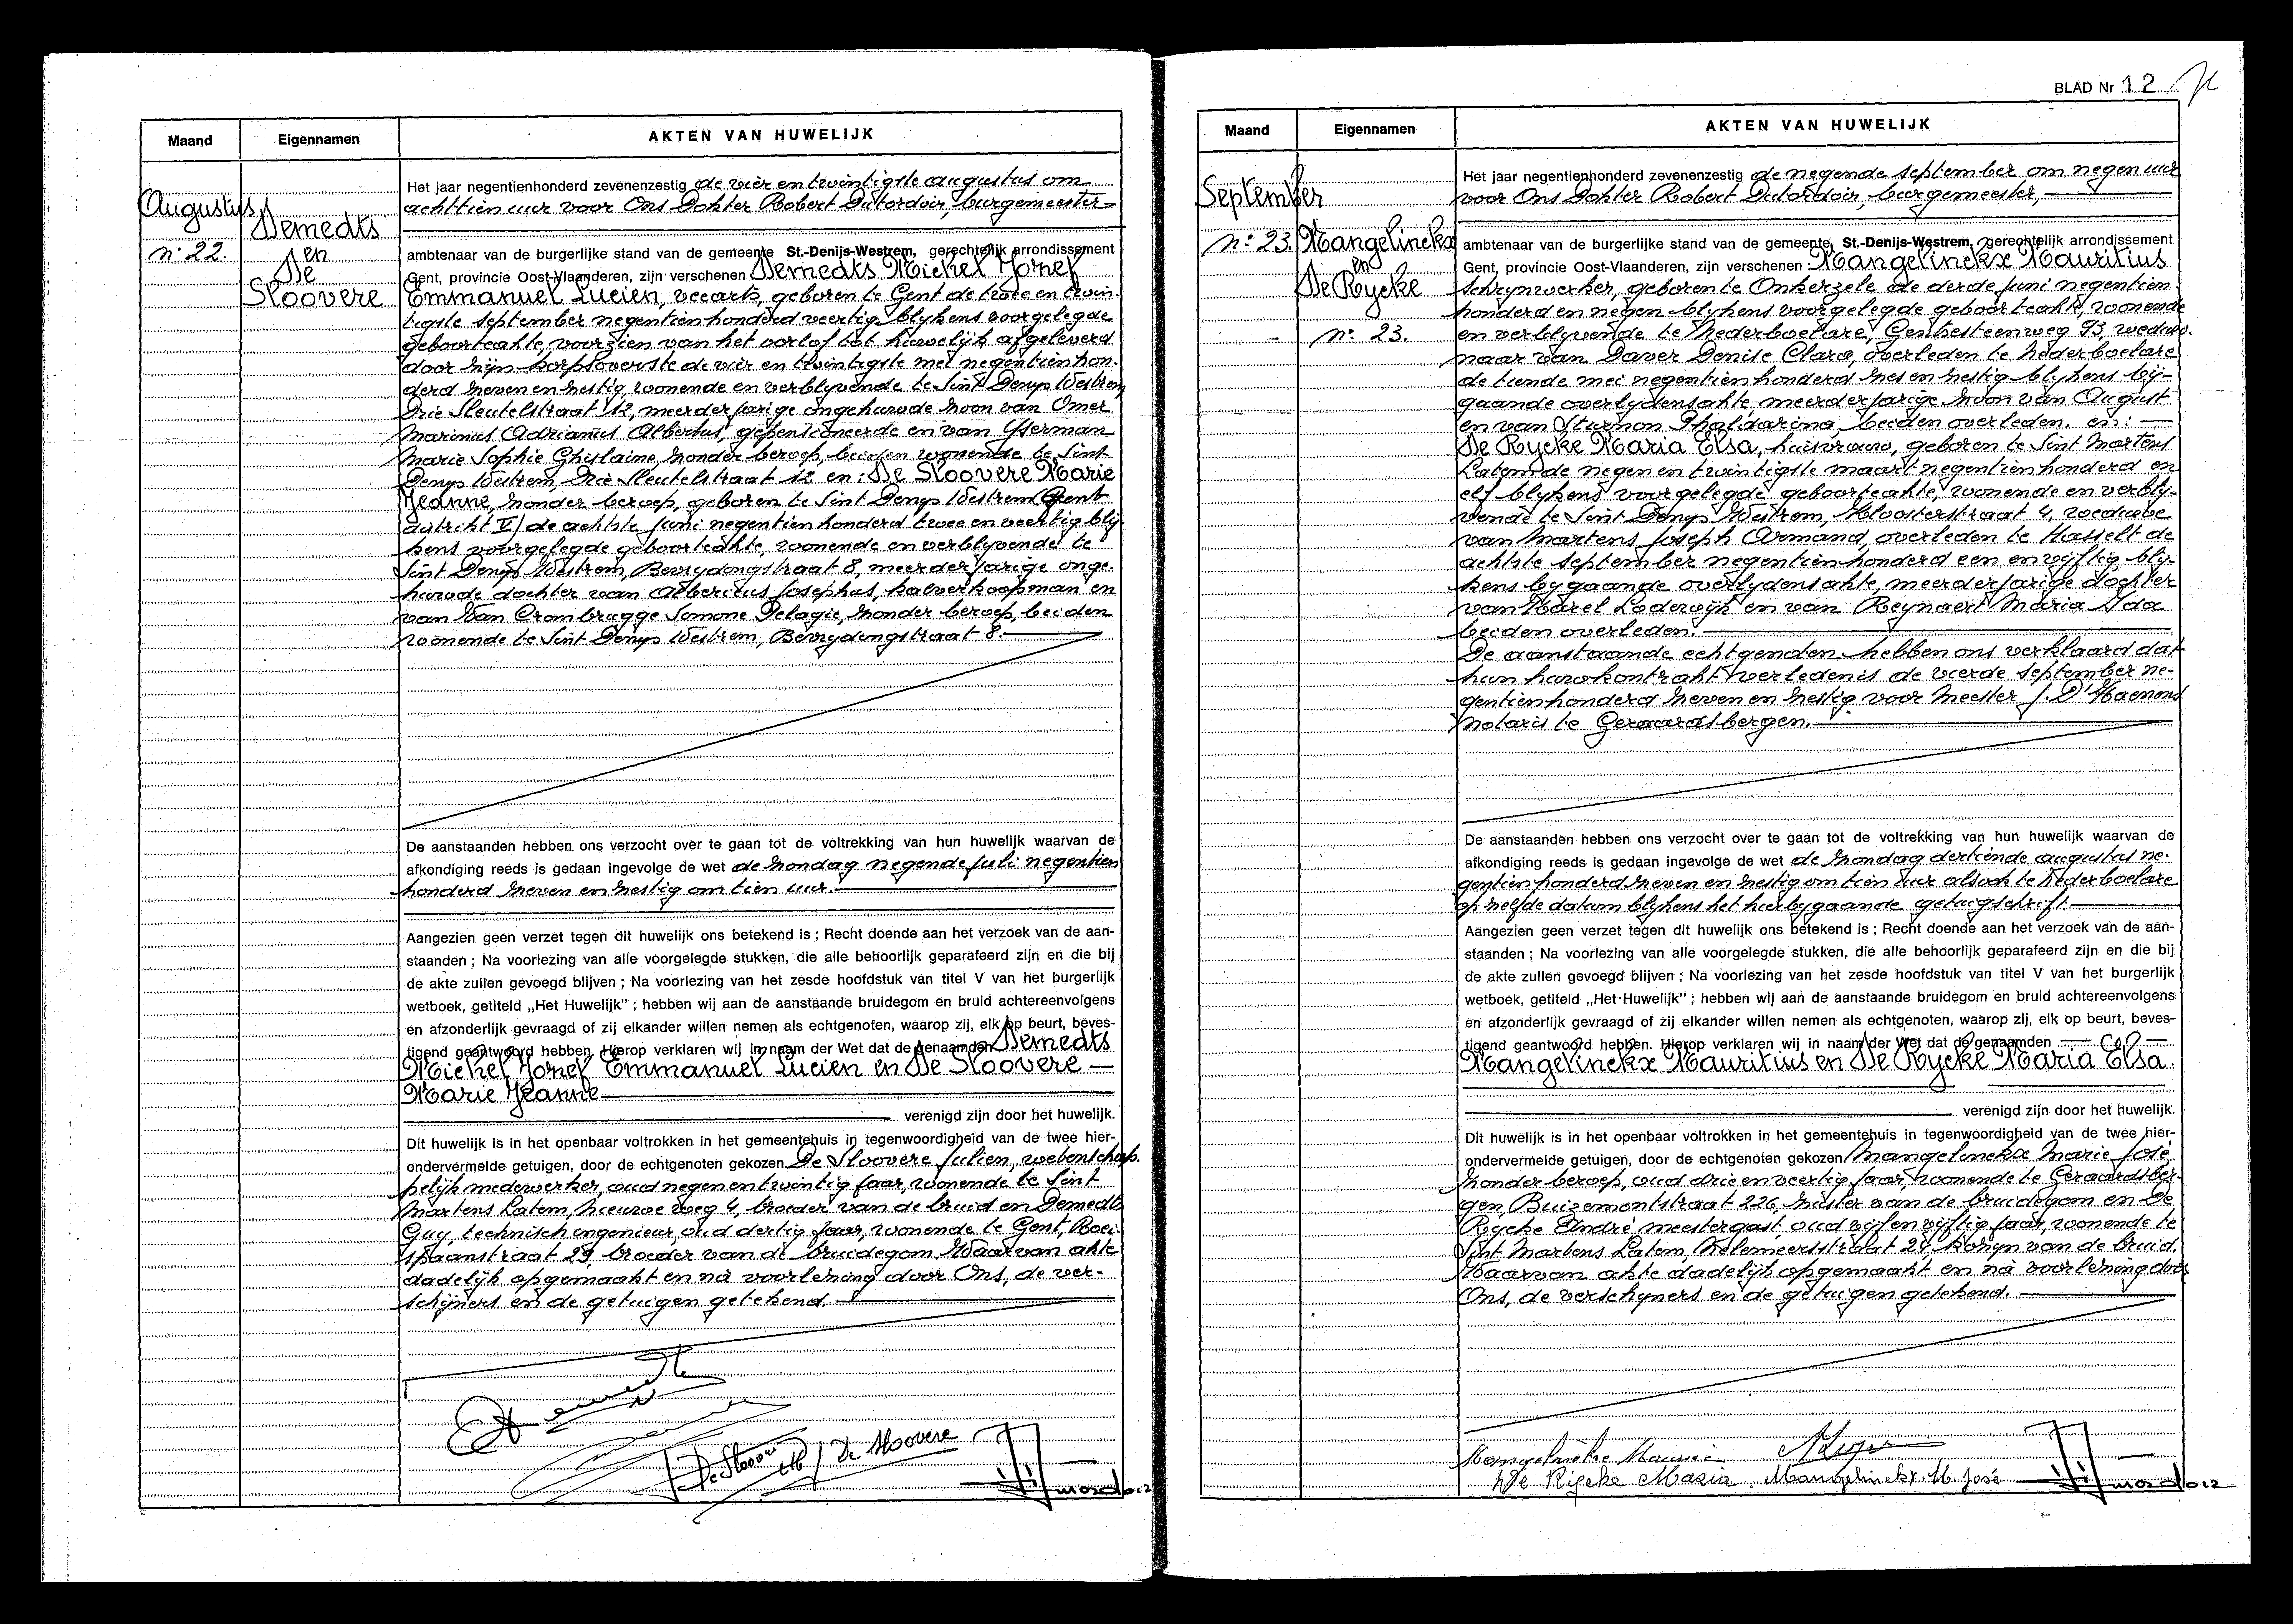 Maand
Eigennamen
AKTEN VAN HUWELIJK
Augustus
n° 22.
Demedts
en
De
Sloovere
Het jaar negentienhonderd zevenenzestig de vier en twintigste augustus om
achttien uur voor Ons Dokter Robert Dutordoir, burgemeester
ambtenaar van de burgerlijke stand van de gemeente St.-Denijs-Westrem, gerechtelijk arrondissement
Gent, provincie Oost-Vlaanderen, zijn verschenen Demedts Michel Jozef
Emmanuel Lucien, veearts, geboren te Gent de twee en twin-
tigste september negentienhonderd veertig blijkens voorgelegde
geboorteakte, voorzien van het oorlof tot huwelijk afgeleverd
door zijn korpsoverste de vier en twintigste mei negentienhon-
derd zeven en zestig, wonende en verblyvende te Sint Denys Westrem
Drie Sleutelstraat 12, meerderjarige ongehuwde zoon van Omer
Marinus Adrianus Albertus, gepensioneerde en van Yserman
Marie Sophie Ghislaine, zonder beroep, beiden wonende te Sint
Denys Westrem, Drie Sleutelstraat 12 en: De Sloovere Marie
Jeanne, zonder beroep, geboren te Sint Denys Westrem (Gent
distrikt V) de achtste juni negentienhonderd twee en veertig blij-
kens voorgelegde geboorteakte, wonende en verblyvende te
Sint Denys Westrem, Bevrydingstraat 8, meerderjarige onge-
huwde dochter van Albericus Josephus, kalverkoopman en
van Van Crombrugge Simone Pelagie, zonder beroep, beiden
wonende te Sint Denys Westrem, Bevrydingstraat 8.
De aanstaanden hebben ons verzocht over te gaan tot de voltrekking van hun huwelijk waarvan de
afkondiging reeds is gedaan ingevolge de wet de zondag negende juli negentien
honderd zeven en zestig om tien uur.
Aangezien geen verzet tegen dit huwelijk ons betekend is ; Recht doende aan het verzoek van de aan-
staanden ; Na voorlezing van alle voorgelegde stukken, die alle behoorlijk geparafeerd zijn en die bij
de akte zullen gevoegd blijven ; Na voorlezing van het zesde hoofdstuk van titel V van het burgerlijk
wetboek, getiteld „Het Huwelijk" ; hebben wij aan de aanstaande bruidegom en bruid achtereenvolgens
en afzonderlijk gevraagd of zij elkander willen nemen als echtgenoten, waarop zij, elk op beurt, beves-
tigend geantwoord hebben. Hierop verklaren wij in naam der Wet dat de genaamden Demedts
Michel Jozef Emmanuel Lucien en De Sloovere
Marie Jeanne
verenigd zijn door het huwelijk.
Dit huwelijk is in het openbaar voltrokken in het gemeentehuis in tegenwoordigheid van de twee hier-
ondervermelde getuigen, door de echtgenoten gekozen De Sloovere Julien, wetenschap-
pelijk medewerker, oud negen en twintig jaar, wonende te Sint
Martens Latem, Nieuwe weg 4, broeder van de bruid en Demedts
Guy, technisch ingenieur, oud dertig jaar, wonende te Gent, Roei-
spaanstraat 29, broeder van de bruidegom. Waarvan akte
dadelijk opgemaakt en nà voorlezing door Ons, de ver-
schijners en de getuigen getekend.
De Sloovere
BLAD Nr 12
Maand
Eigennamen
AKTEN VAN HUWELIJK
September
n° 23.
Mangelinckx
en
De Rycke
n° 23.
Het jaar negentienhonderd zevenenzestig de negende september om negen uur
voor Ons Dokter Robert Dutordoir, burgemeester,
ambtenaar van de burgerlijke stand van de gemeente St.-Denijs-Westrem, gerechtelijk arrondissement
Gent, provincie Oost-Vlaanderen, zijn verschenen : Mangelinckx Mauritius
schrynwerker, geboren te Onkerzele de derde juni negentien
honderd en negen blykens voorgelegde geboorteakte, wonende
en verblyvende te Nederboelare, Gentsesteenweg 93, weduw-
naar van Daver Denise Clara, overleden te Nederboelare
de tiende mei negentienhonderd zes en zestig blykens bij-
gaande overlydensakte, meerderjarige zoon van August
en van Sturmon Phaldarina, beiden overleden. en:
De Rycke Maria Elsa, huisvrouw, geboren te Sint Martens
Latem de negen en twintigste maart negentienhonderd en
elf blykens voorgelegde geboorteakte, wonende en verbly-
vende te Sint Denys Westrem, Kloosterstraat 4, weduwe
van Martens Joseph Armand, overleden te Hasselt de
achtste september negentienhonderd een en vyftig, bly-
kens bygaande overlydensakte, meerderjarige dochter
van Karel Lodewijk en van Reynaert Maria Ida
beiden overleden.
De aanstaande echtgenoten hebben ons verklaard dat
hun huwkontrakt verleden is de vierde september ne-
gentienhonderd zeven en zestig voor Meester J. D'Haenens
notaris te Geraardsbergen.
De aanstaanden hebben ons verzocht over te gaan tot de voltrekking van hun huwelijk waarvan de
afkondiging reeds is gedaan ingevolge de wet de zondag dertiende augustus ne-
gentienhonderd zeven en zestig om tien uur alsook te Nederboelare
op zelfde datum blykens het hierbygaande getuigschrift.
Aangezien geen verzet tegen dit huwelijk ons betekend is ; Recht doende aan het verzoek van de aan-
staanden ; Na voorlezing van alle voorgelegde stukken, die alle behoorlijk geparafeerd zijn en die bij
de akte zullen gevoegd blijven ; Na voorlezing van het zesde hoofdstuk van titel V van het burgerlijk
wetboek, getiteld „Het Huwelijk" ; hebben wij aan de aanstaande bruidegom en bruid achtereenvolgens
en afzonderlijk gevraagd of zij elkander willen nemen als echtgenoten, waarop zij, elk op beurt, beves-
tigend geantwoord hebben. Hierop verklaren wij in naam der Wet dat de genaamden
Mangelinckx Mauritius en De Rycke Maria Elsa.
verenigd zijn door het huwelijk.
Dit huwelijk is in het openbaar voltrokken in het gemeentehuis in tegenwoordigheid van de twee hier-
ondervermelde getuigen, door de echtgenoten gekozen Mangelinckx Marie José,
zonder beroep, oud drie en veertig jaar, wonende te Geraardsber-
gen, Buizemontstraat 226, zuster van de bruidegom en De
Rycke André meestergast, oud vijf en vijftig jaar, wonende te
Sint Martens Latem, Molemeersstraat 24, kozyn van de bruid.
Waarvan akte dadelijk opgemaakt en nà voorlezing door
Ons, de verschyners en de getuigen getekend.
De Rycke Maria Mangelinckx M. José